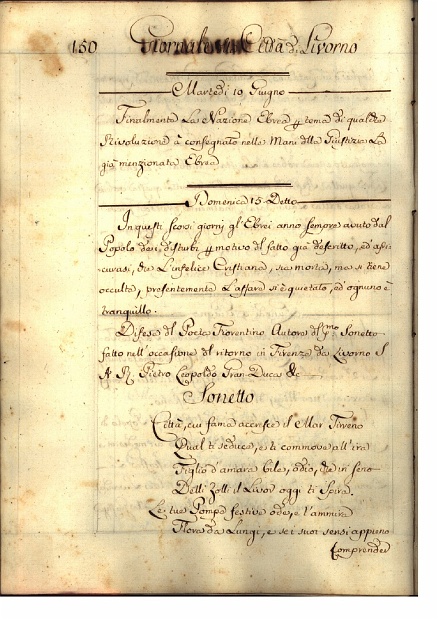 150 Giornale della Città di Livorno
Martedi 10 Giugno
Finalmente La Nazione Ebrea p tema di qualche
Rivoluzione à consegnato nelle Mani della Giustizia La
già menzionata Ebrea
Domenica 15 Detto
In questi scorsi giorni gl'Ebrei anno sempre avuto dal
Popolo dei disturbi p motivo del fatto già descritto, ed assi
curasi, che L'infelice Cristiana, sia morta, ma si tiene
occulta, presentemente L'affare si è quietato, ed ognuno è
tranquillo.
Difesa del Poeta Fiorentino Autore del pmo Sonetto
fatto nell'occasione del ritorno in Firenze da Livorno S
A R Pietro Leopoldo Gran Duca &c
Sonetto
Città, cui fama accresce il Mar Tirreno
Qual ti seduce, e ti commove all'ira
Figlio d'amara bile, odio, che in seno
Delli Zolli il Livor oggi ti Spira.
Le tue Pompe festive ode, e l'ammira
Flora da Lungi, e sei suoi sensi appieno
Comprender